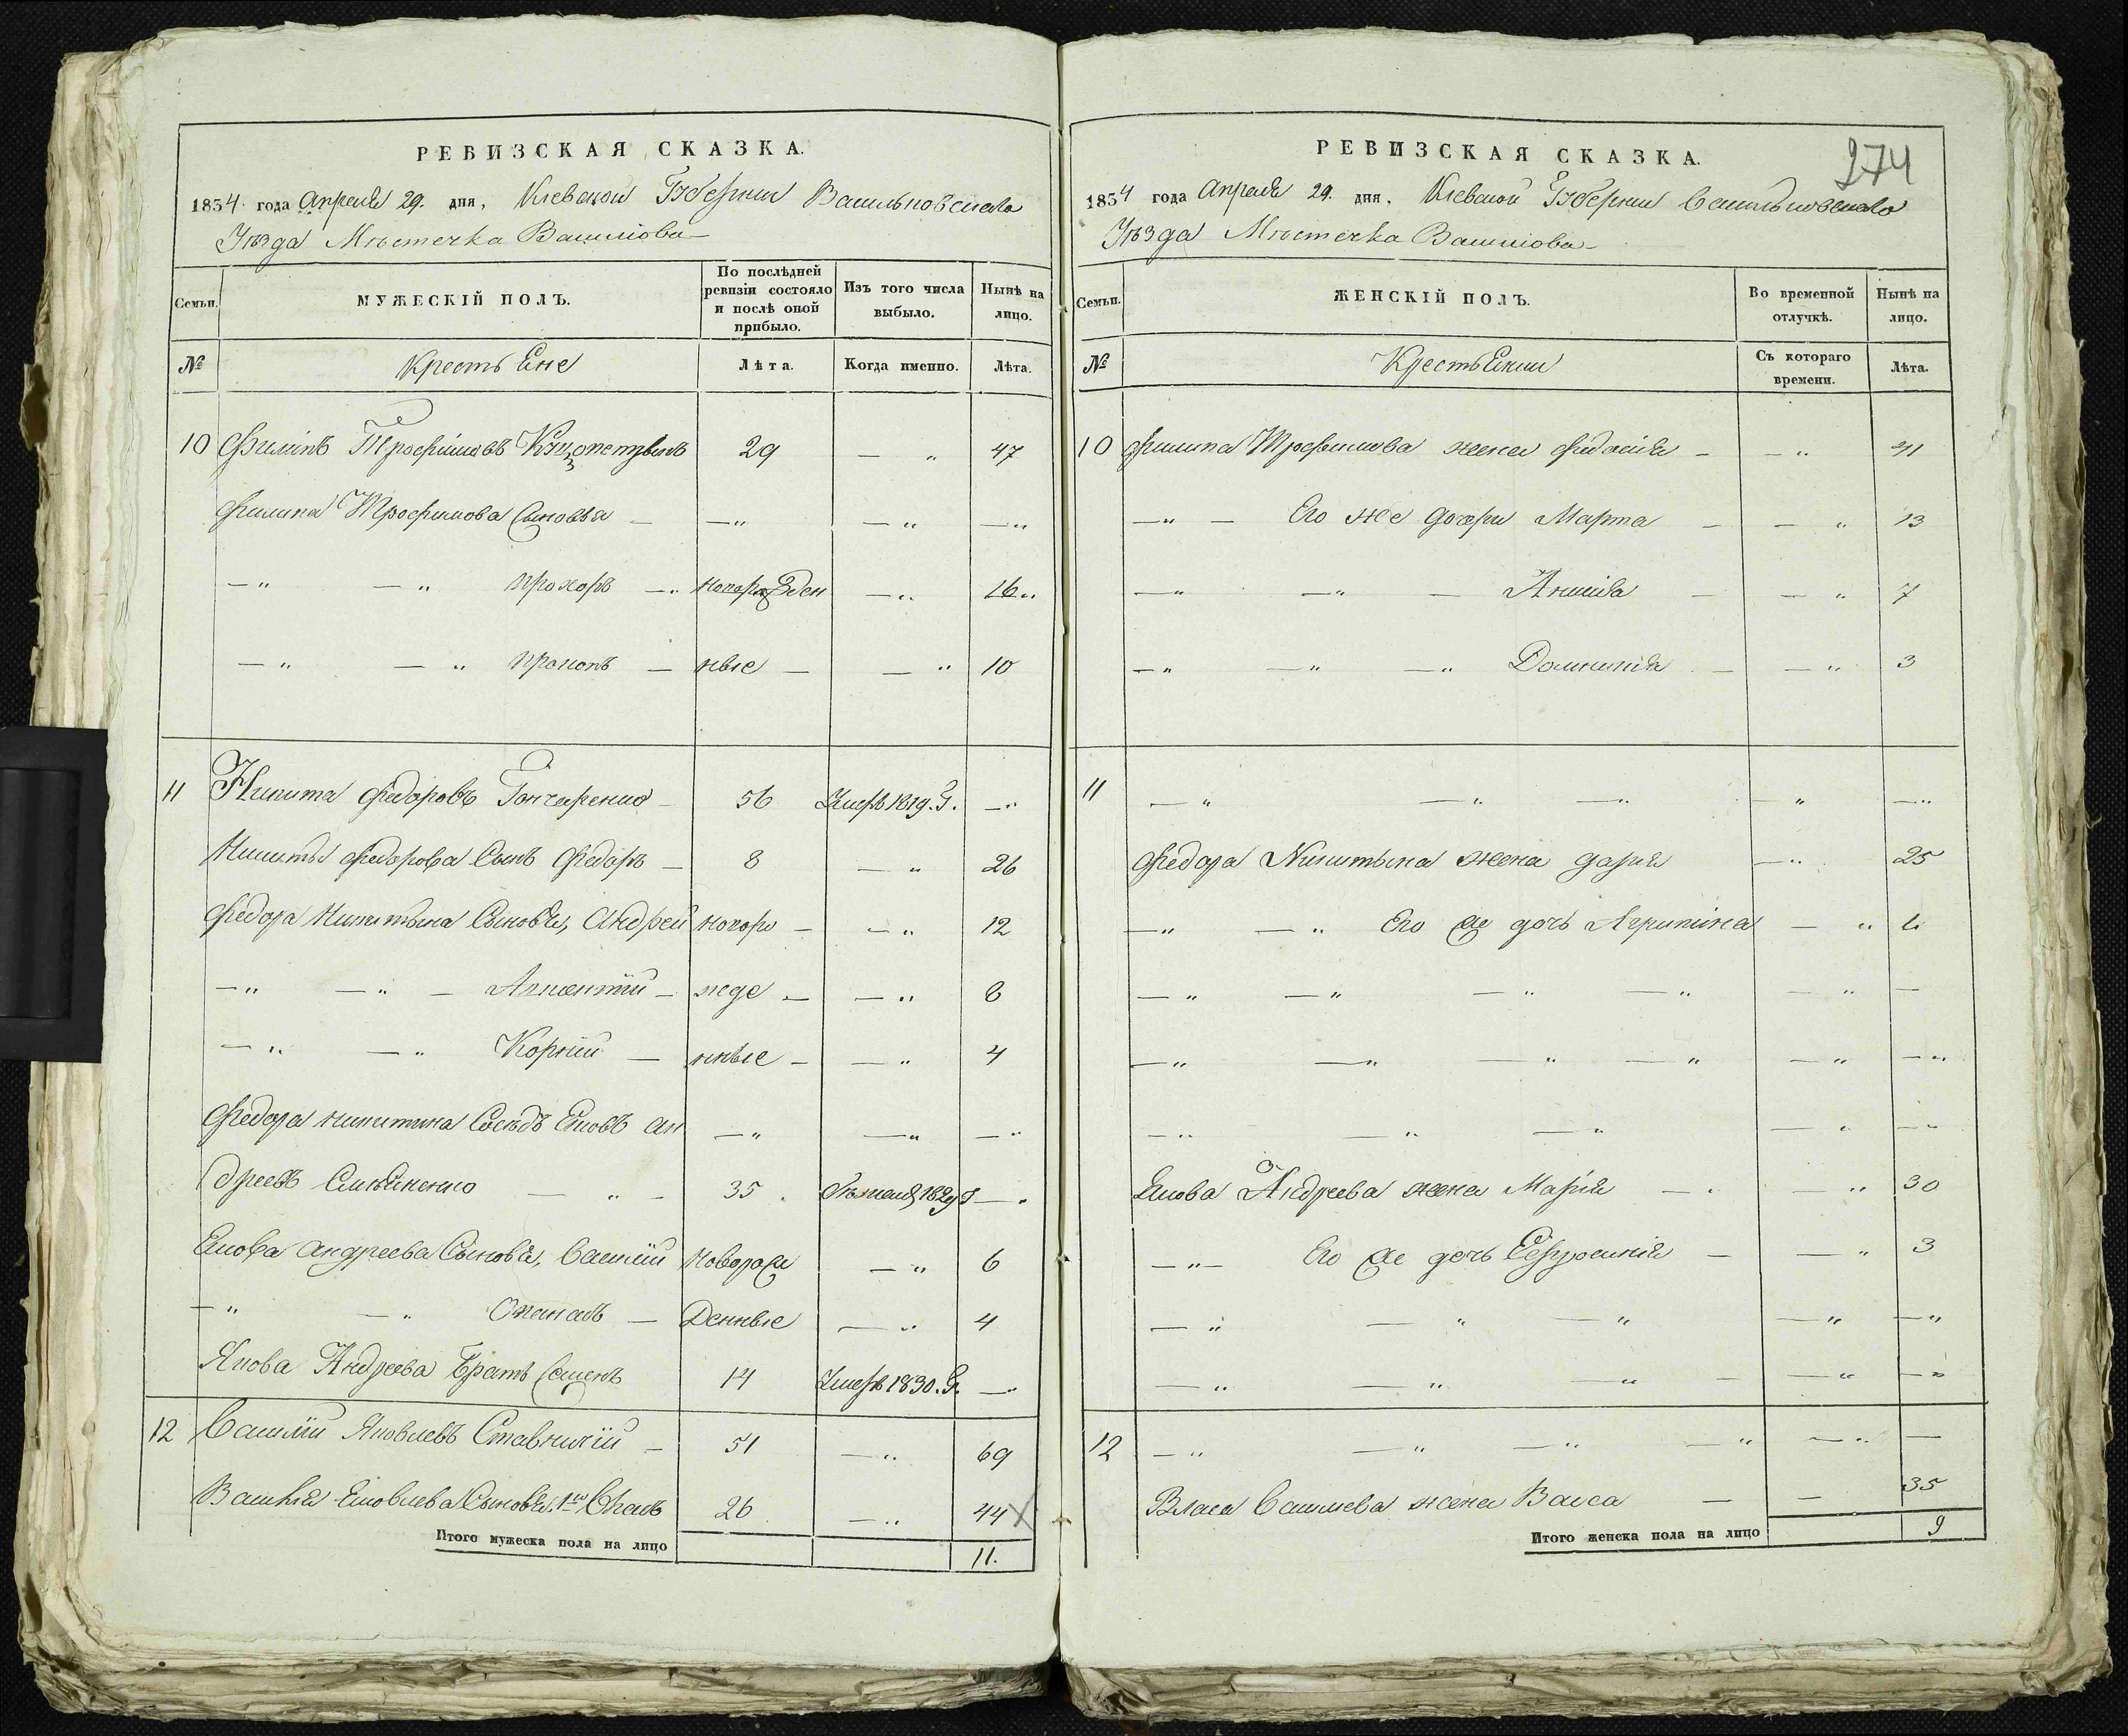 РЕВИЗСКАЯ СКАЗКА.
1834 года Апреля 29. дня, Киевской Губернии Васильковского
Уѣзда Мѣстечка Василкова
Семьи. МУЖЕСКІЙ ПОЛЪ. По послѣдней ревизіи состояло и послѣ оной прибыло. Изъ того числа выбыло. Нынѣ на лицо.
№ Крестьяне Лѣта. Когда именно. Лѣта.
10 Филипъ Трофимовъ 29 — „ 47
Филипа Трофимова Сыновья — — „ — „ — „
— „ — „ Прохоръ — „ новорожден — „ 16 „
— „ — „ Прокопъ — ные — — „ 10
11 Никита Федоровъ Гончаренко — 56 Умеръ 1819. Г. — „
Никиты Федорова Сынъ Федоръ — 8 — „ 26
Федора Никитына Сыновья, Андрей новоро — — „ 12
— „ — „ — — жде — — „ 8
— „ — „ Корній — нные — — „ 4
Федора Никитина Сосѣдъ Яковъ Ан — „ — „ — „
дреевъ — „ — 35 . 1829 Г — „
Якова Андреева Сыновья, Василій Новорож — „ 6
— „ — „ — Денные — „ 4
Якова Андреева Братъ Семенъ 14 Умеръ 1830. Г. — „
12 Василій Яковлевъ Ставничій — 51 — „ 69
Василія Яковлева Сыновья, 1й Власъ 26 — „ 44 X
Итого мужеска пола на лицо 11.
274
РЕВИЗСКАЯ СКАЗКА.
1834 года Апреля 29. дня, Киевской Губернии Васильковского
Уѣзда Мѣстечка Василкова
Семьи. ЖЕНСКІЙ ПОЛЪ. Во временной отлучкѣ. Нынѣ на лицо.
№ Крестьянки Съ котораго времени. Лѣта.
10 Филипа Трофимова жена Федосія — — „ 41
— „ — Его же дочери Марта — — „ 13
— „ — „ — — — „ 7
— „ — „ — „ Домникія — — „ 3
11 — „ — „ — „ — „ — „
Федора Никитына жена Дарія — „ 25
— „ — „ Его же дочь Агрипина — „
— „ — „ — „ — „ — „ —
— „ — „ — „ — „ — „ — „
— „ — „ — „ — „ — „
Якова Андреева жена Марія — . — „ 30
— „ — Его же дочь Ефросинія — — „ 3
— „ — „ — „ — „ — „
— „ — „ — „ — — „ — „
12 — „ — „ — „ — „ — „ —
Власа Василиева жена Васса — — 35
Итого женска пола на лицо 9